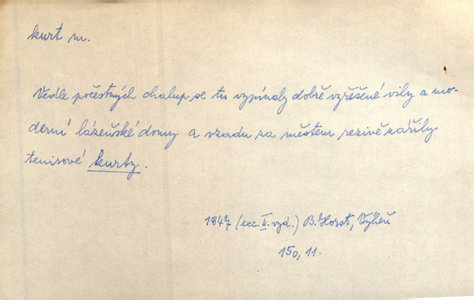 kurt m.
Vedle počestných chalup se tu vypínaly dobře vyřešené vily a mo-
derní lázeňské domy a vzadu za městem rezivě zářily
tenisové kurty.
1947 (exc. II. vyd.) B. Horst, Výheň
150, 11.